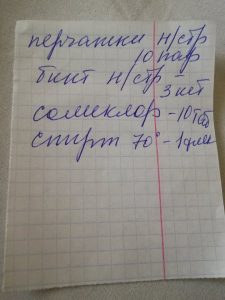 перчатки н/стр
10 пар
бинт н/стр -
3 шт
соликлор - 10таб
спирт 70° - 1 флак